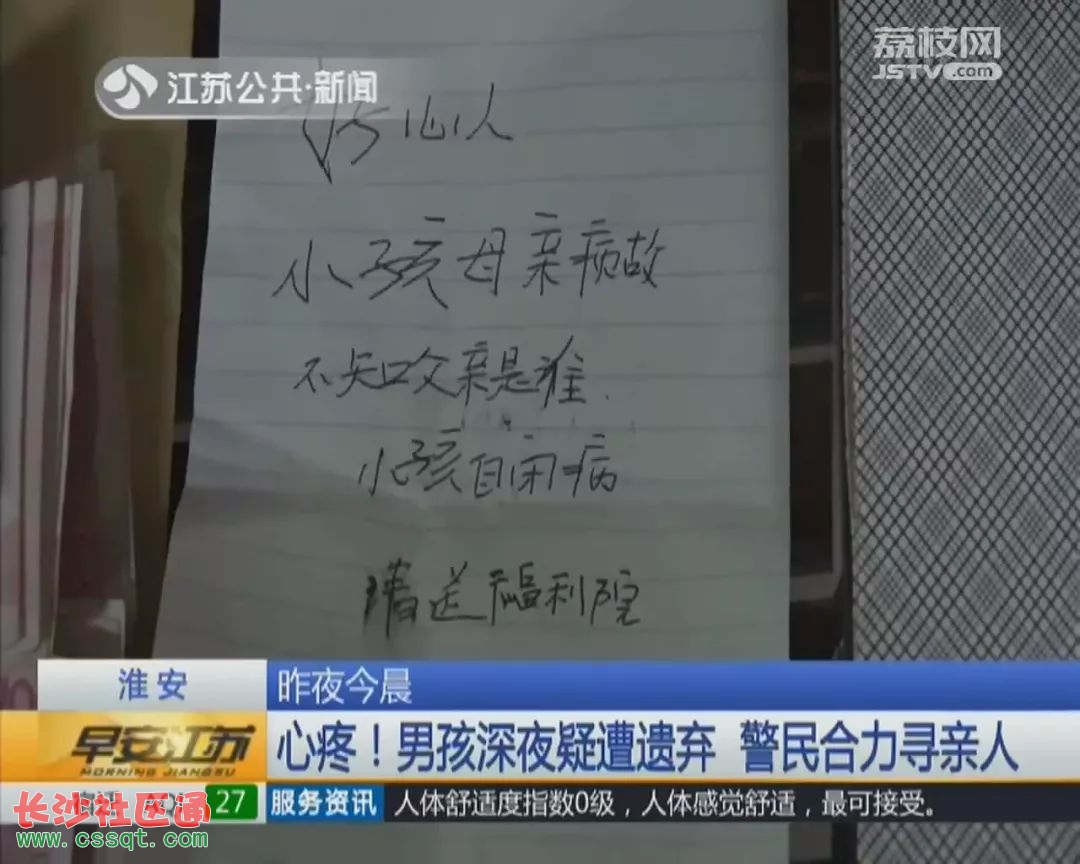 荔枝网
JSTV.com
江苏公共·新闻
好心人
小孩母亲病故
不知父亲是谁.
小孩自闭病
请送福利院
淮安
昨夜今晨
早安江苏
MORNING JIANGSU
心疼！男孩深夜疑遭遗弃 警民合力寻亲人
27
服务资讯
人体舒适度指数0级，人体感觉舒适，最可接受。
长沙社区通
www.cssqt.com